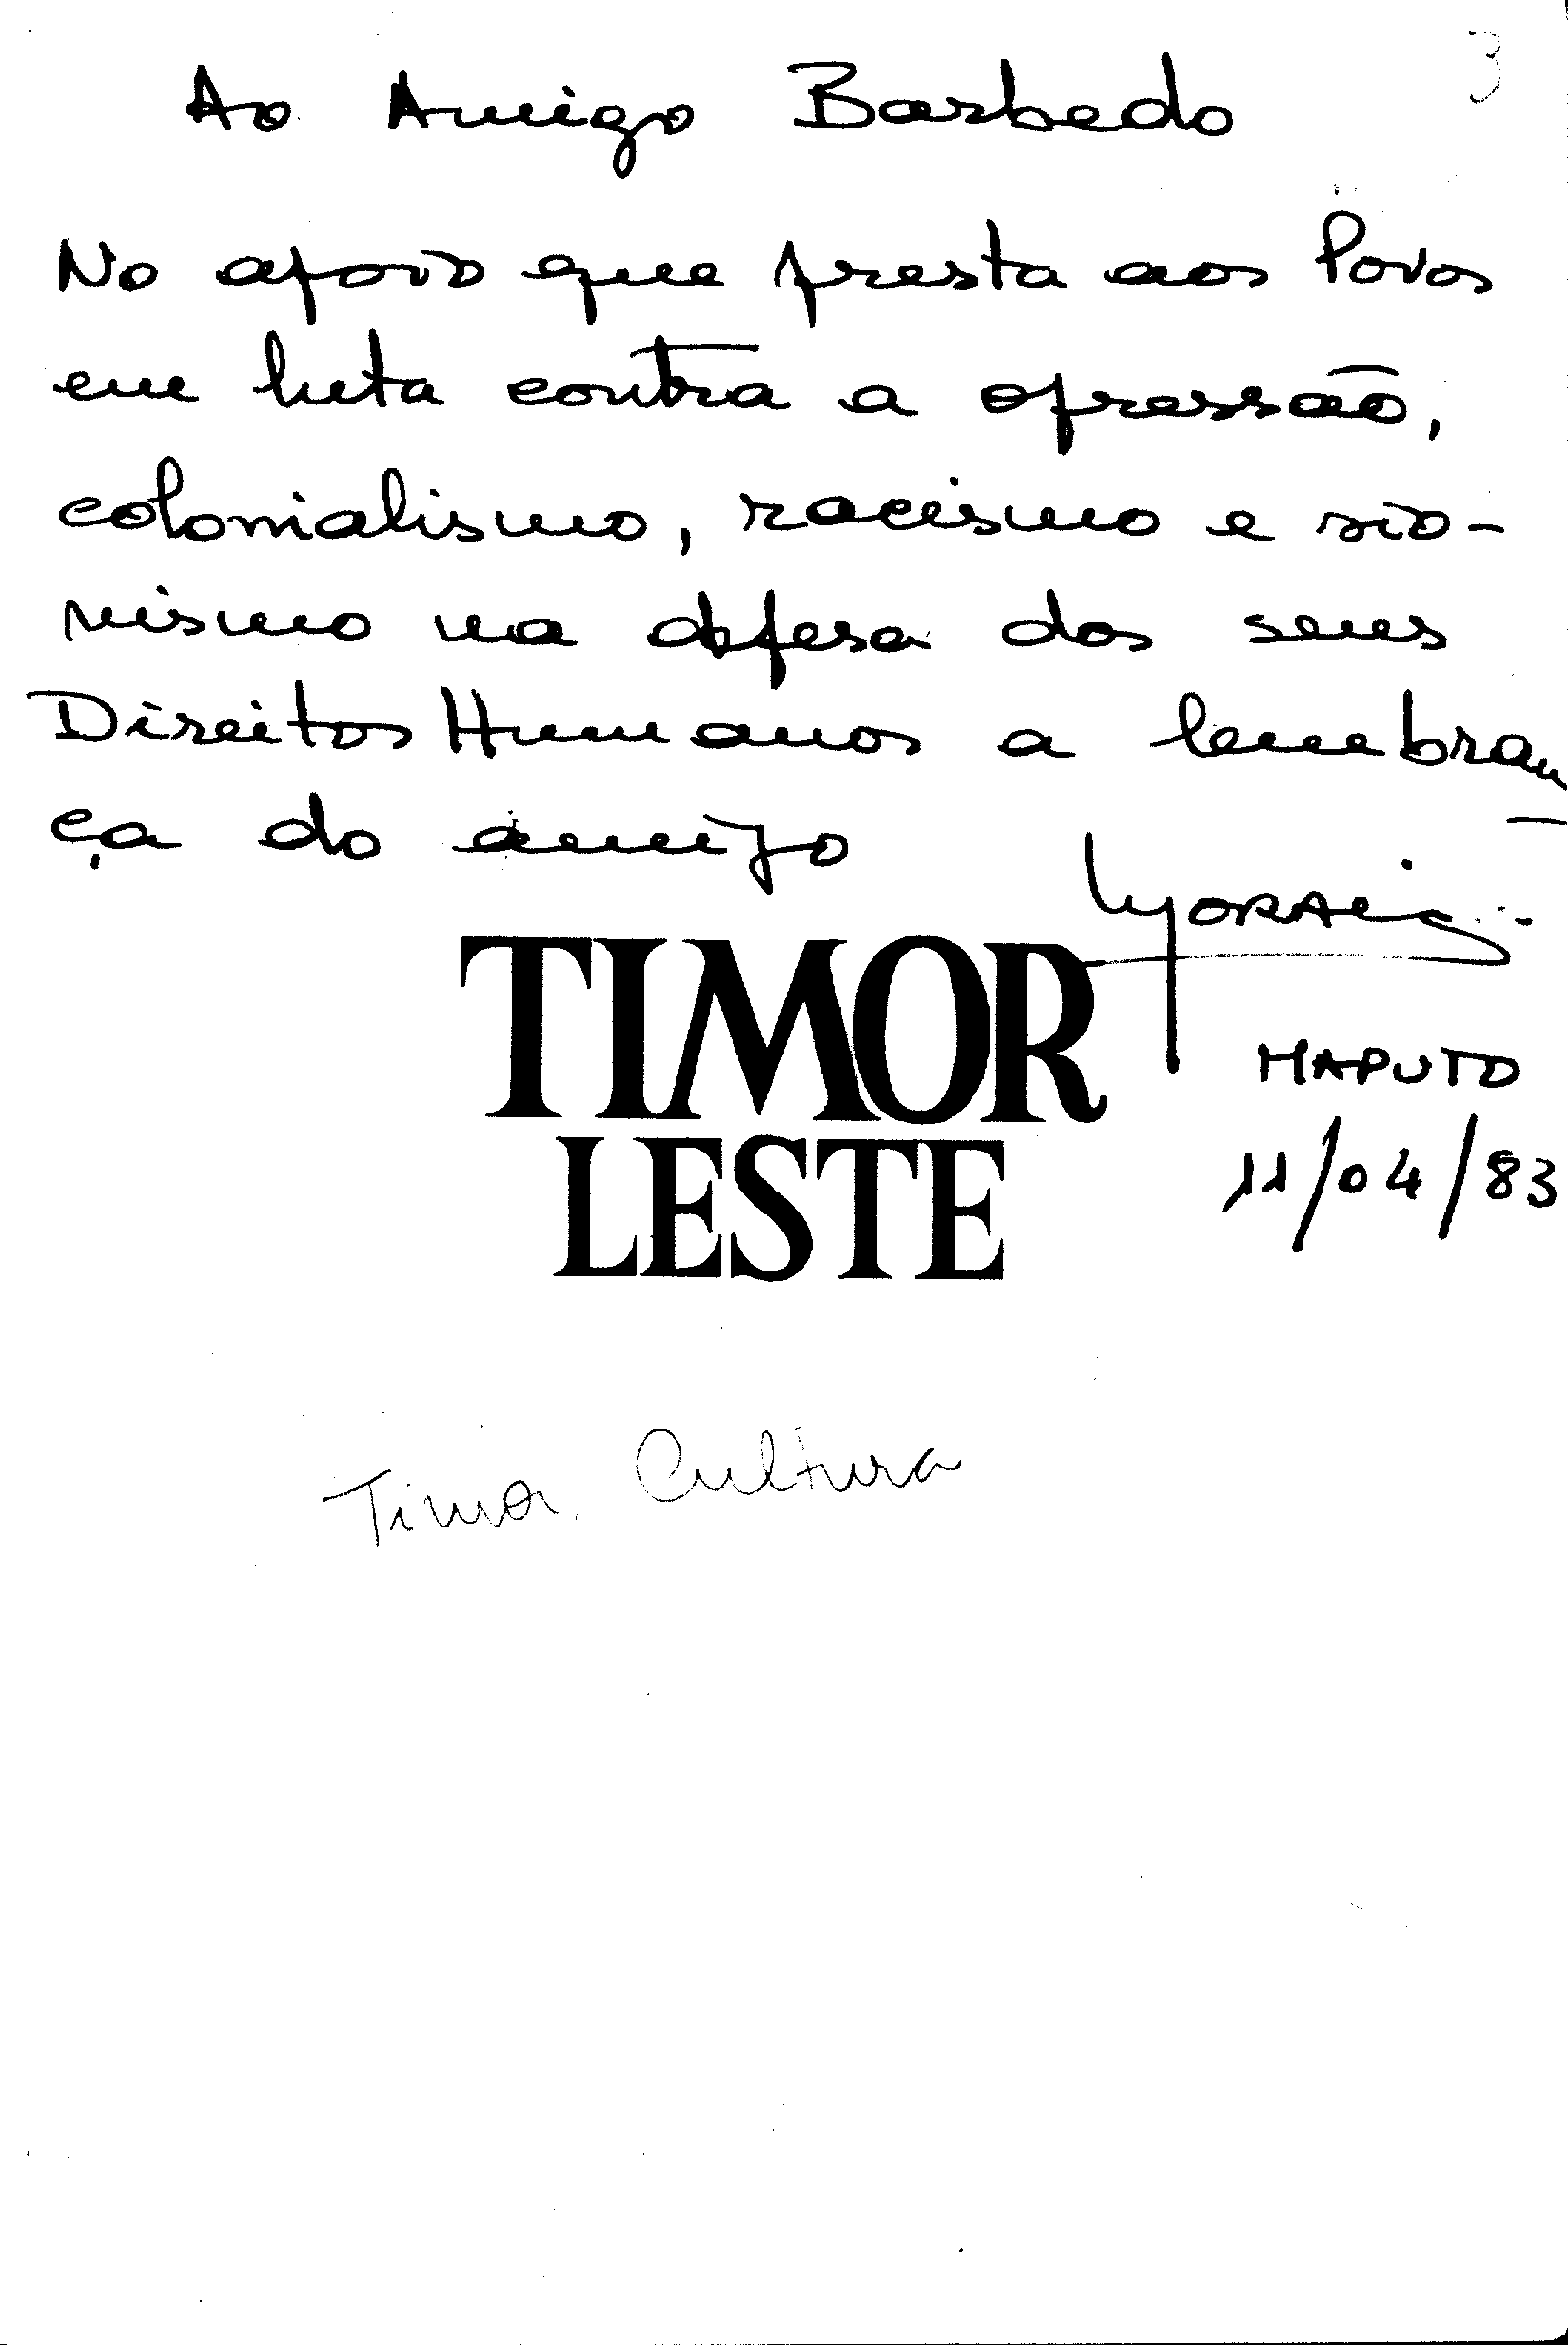 3
Ao Amigo Barbedo
No apoio que presta aos Povos
em luta contra a opressão,
colonialismo, racismo e sio-
nismo na defesa dos seus
Direitos Humanos a lembran
ça do amigo
Morais
TIMOR
LESTE
MAPUTO
11/04/83
Timor. Cultura